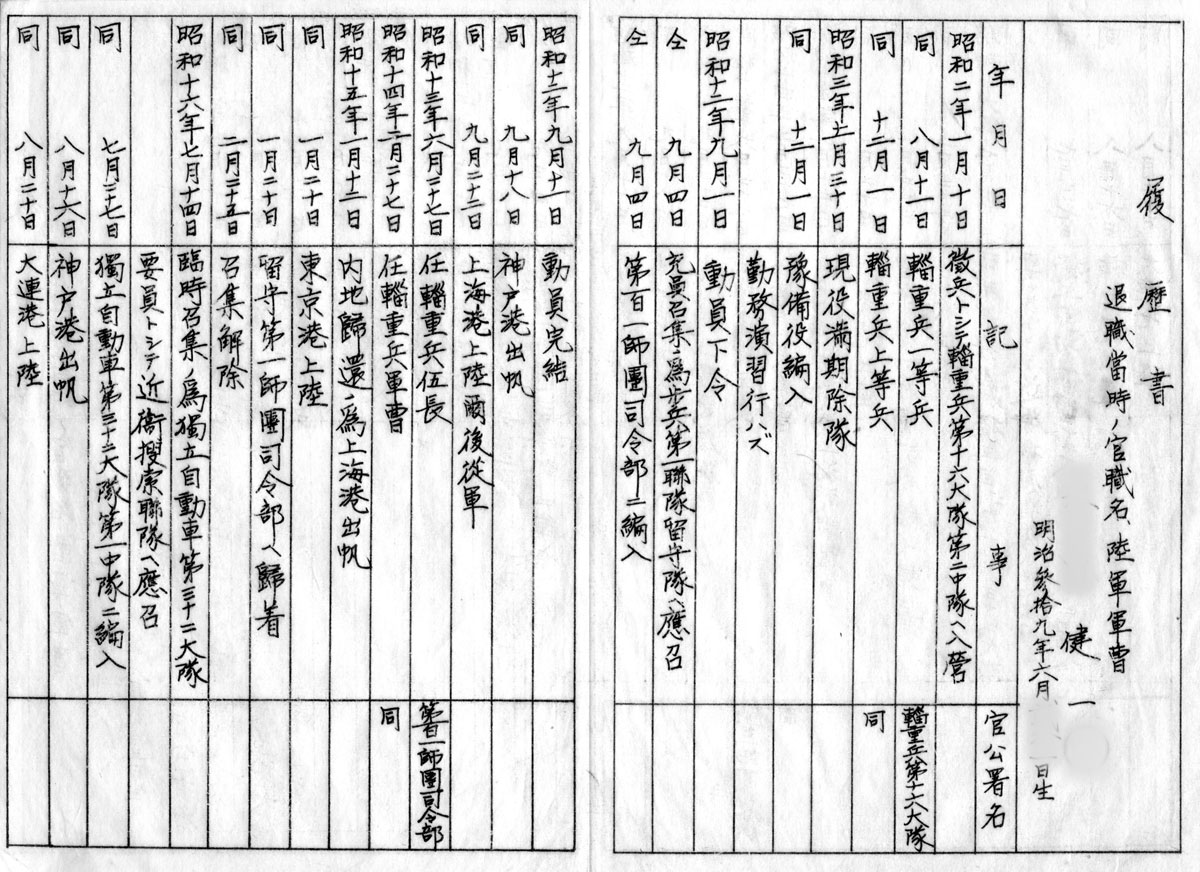 履歴書
退職當時ノ官職名、陸軍軍曹
健一
明治参拾九年六月 日生
年月日 記事 官公署名
昭和二年一月十日 徴兵トシテ輜重兵第十六大隊第二中隊ヘ入營
同 八月十一日 輜重兵一等兵 輜重兵第十六大隊
同 十二月一日 輜重兵上等兵 同
昭和三年十一月三十日 現役満期除隊
同 十二月一日 豫備役編入
勤務演習行ハズ
昭和十二年九月一日 動員下令
仝 九月四日 充員召集ノ為歩兵第一聯隊留守隊ヘ應召
仝 九月四日 第百一師團司令部ニ編入
昭和十二年九月十一日 動員完結
同 九月十八日 神戸港出帆
同 九月二十二日 上海港上陸爾後從軍
昭和十三年六月二十七日 任輜重兵伍長 第百一師團司令部
昭和十四年二月二十七日 任輜重兵軍曹 同
昭和十五年一月十二日 内地歸還ノ為上海港出帆
同 一月二十日 東京港上陸
同 一月二十日 留守第一師團司令部ヘ歸着
同 二月二十五日 召集解除
昭和十六年七月十四日 臨時召集ノ為獨立自動車第三十二大隊
要員トシテ近衞搜索聯隊ヘ應召
同 七月二十七日 獨立自動車第三十二大隊第一中隊ニ編入
同 八月十六日 神戸港出帆
同 八月二十日 大連港上陸